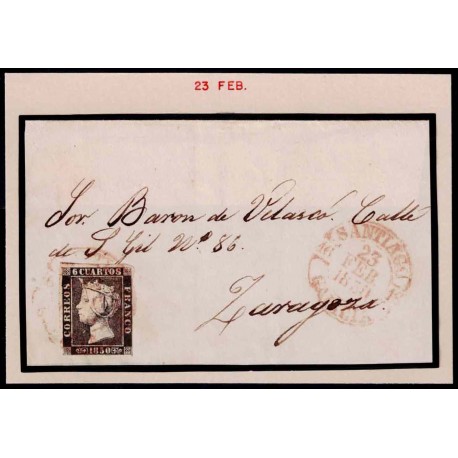 23 FEB.
Sor. Baron de Velasco. Calle
de S. Gil Nº. 86.
Zaragoza.
SANTIAGO
23
FEB
1850
6 CUARTOS
CORREOS
FRANCO
1850